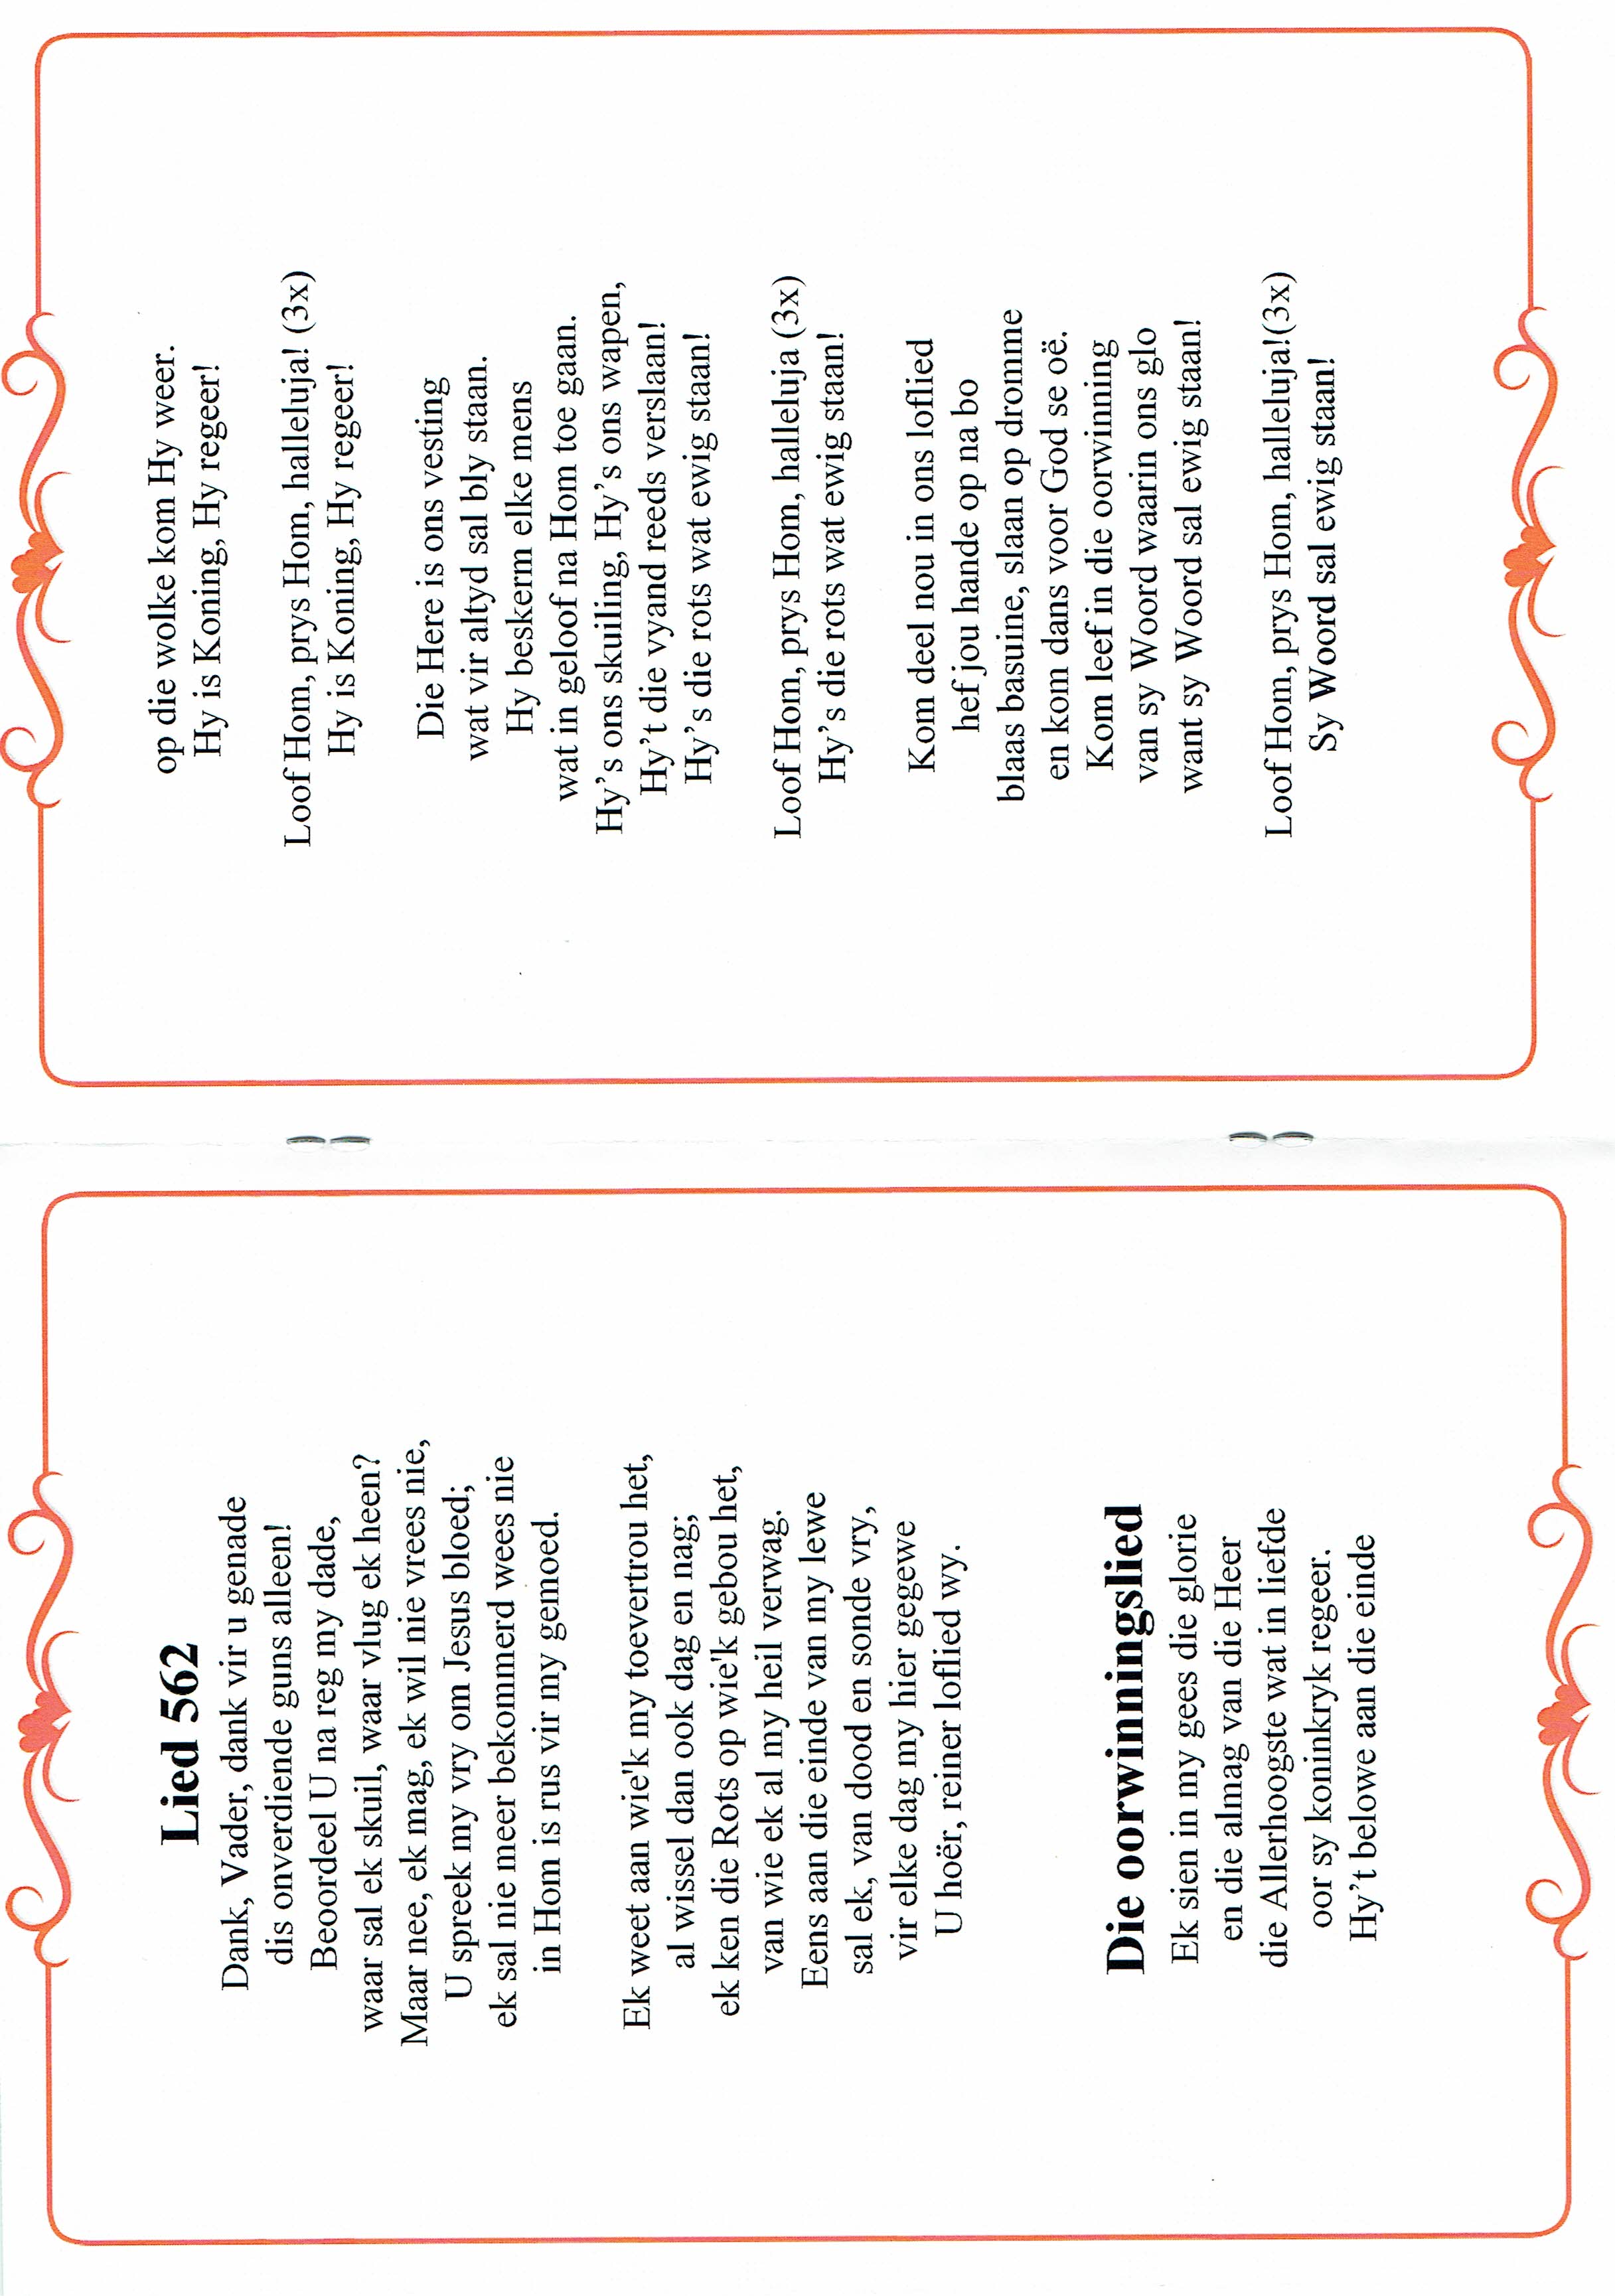 Lied 562
Dank, Vader, dank vir u genade
dis onverdiende guns alleen!
Beoordeel U na reg my dade,
waar sal ek skuil, waar vlug ek heen?
Maar nee, ek mag, ek wil nie vrees nie,
U spreek my vry om Jesus bloed;
ek sal nie meer bekommerd wees nie
in Hom is rus vir my gemoed.
Ek weet aan wie'k my toevertrou het,
al wissel dan ook dag en nag;
ek ken die Rots op wie'k gebou het,
van wie ek al my heil verwag.
Eens aan die einde van my lewe
sal ek, van dood en sonde vry,
vir elke dag my hier gegewe
U hoër, reiner loflied wy.
Die oorwinningslied
Ek sien in my gees die glorie
en die almag van die Heer
die Allerhoogste wat in liefde
oor sy koninkryk regeer.
Hy’t belowe aan die einde
op die wolke kom Hy weer.
Hy is Koning, Hy regeer!
Loof Hom, prys Hom, halleluja! (3x)
Hy is Koning, Hy regeer!
Die Here is ons vesting
wat vir altyd sal bly staan.
Hy beskerm elke mens
wat in geloof na Hom toe gaan.
Hy’s ons skuiling, Hy’s ons wapen,
Hy’t die vyand reeds verslaan!
Hy’s die rots wat ewig staan!
Loof Hom, prys Hom, halleluja (3x)
Hy’s die rots wat ewig staan!
Kom deel nou in ons loflied
hef jou hande op na bo
blaas basuine, slaan op dromme
en kom dans voor God se oë.
Kom leef in die oorwinning
van sy Woord waarin ons glo
want sy Woord sal ewig staan!
Loof Hom, prys Hom, halleluja!(3x)
Sy Woord sal ewig staan!